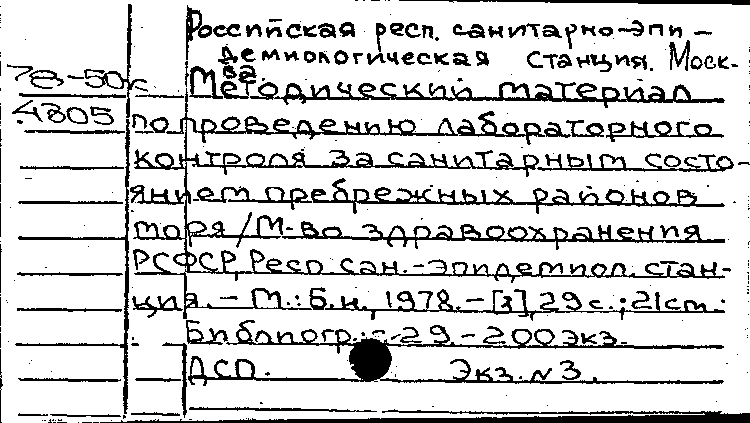 Российская респ. санитарно-эпи-
демиологическая станция. Моск-
ва.
78-50к Методический материал
4805 по проведению лабораторного
контроля за санитарным состо-
янием пребрежных районов
моря/М-во здравоохранения
РСФСР, Респ сан.-эпидемиол. стан-
ция. - М.: Б.и., 1978. - [3], 29 с.; 21 см. -
Библиогр.: с. 29. - 200 экз.
ДСП. Экз. № 3.